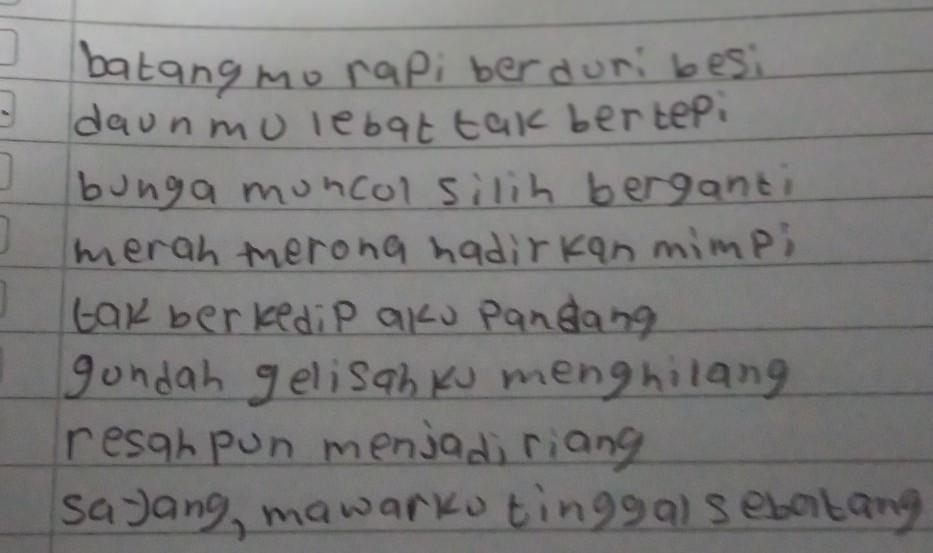 batangmu rapi berduri besi
daunmu lebat tak bertepi
bunga muncul silih berganti
merah merona hadirkan mimpi
tak berkedip aku pandang
gundah gelisahku menghilang
resah pun menjadi riang
sayang, mawarku tinggal sebatang